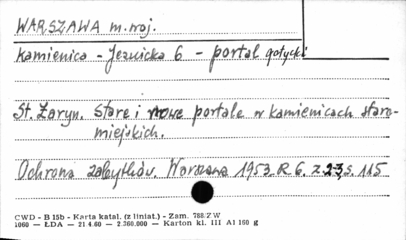 WARSZAWA m.woj.
Kamienica - Jezuicka 6 - portal gotycki
St. Żaryn. Stare i nowe portale w kamienicach staro-
miejskich.
Ochrona zabytków. Warszawa 1953. R. 6. z. 2-3, s. 115
CWD - B 15b - Karta katal. (z liniat.) - Zam. 788/ZW
5060 — ŁDA — 21 4.60 — 2.360.000 — Karton kl. III A1 160 g